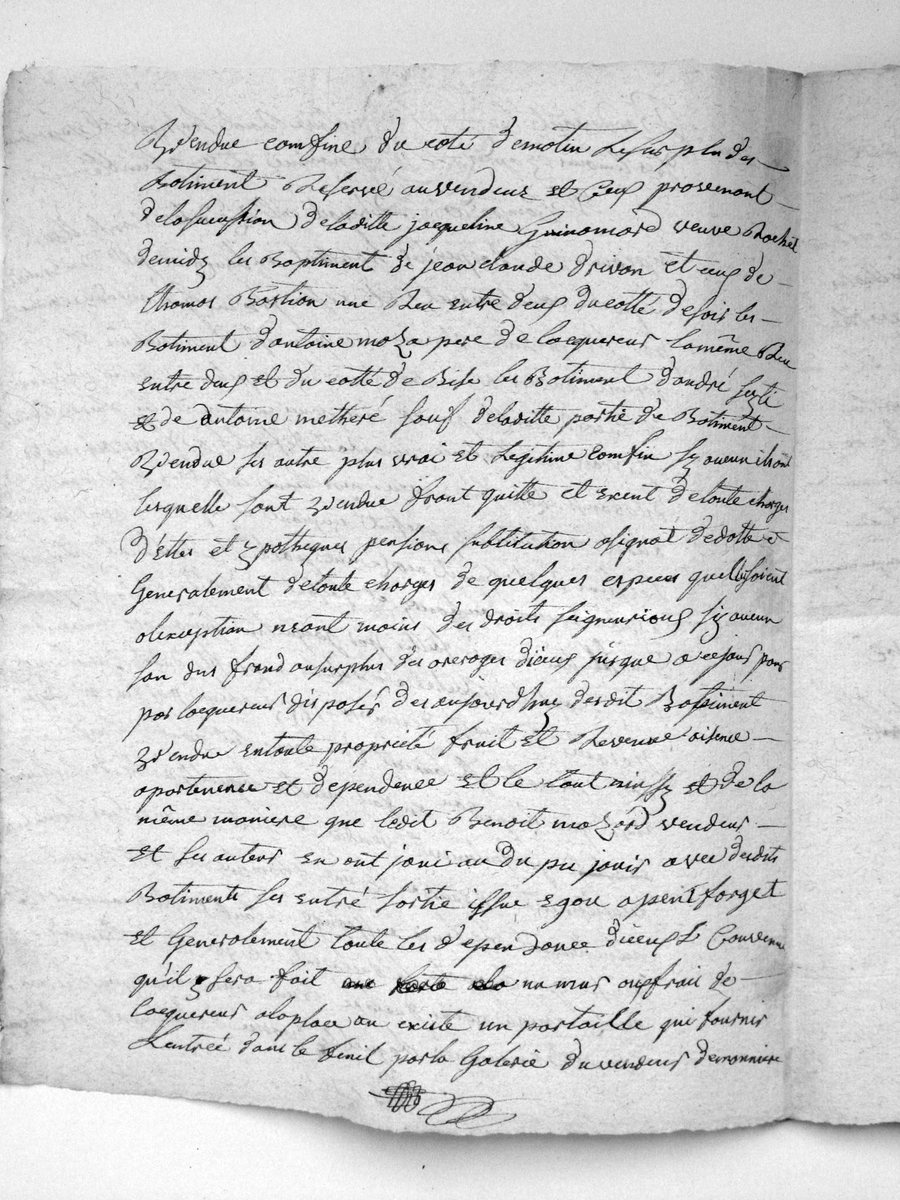 Vendue comfine du coté dematin Lesurplu des
Batiment Reservé auvendeur et Ceux provenant
delasucission deladitte jacqueline Guinamard veuve Rochet
demidy les Baptiment de jean claude drivon et ceux de
thomas Bastion une Reu entre deux du cotté desoir les
Batiment d'antoine moza pere de lacquereur la même Reu
entre deux et du cotté de Bise les Batiment d'andré
et de antoine metheré sauf deladitte partie de Batiment
Vendue ses autre plus vrai et Legitime comfin sy aucun il sont
lesquelle sont vendue frant quitte et exent detoute charges
d'ettes et ypotheques pensions subtitution asignat dedotte et
Generalement detoute charges de quelques especes quelle soient
alexception neant moins des droits seigneuriaux sy aucun
son dus frand ausurplus des arerages diceux jusque acejour pour
par lacquereur disposés des aujourdhuy desdit Batiment
vendue entoute propriété fruit et Revenue aisence
apartenense et dependence et le tout ainssy et de la
même maniere que ledit Benoit mozard vendeur
et ses auteurs en ont joui au du pu jouir avec desdits
Batiments ses entré sortie issue egou apent forget
et Generalement toute les d'ependance diceux Convenu
qu'il y sera fait un mur aux frait de
lacquereur alaplace au existe un partaille qui fournir
Lentrée dans le fenil parla Galerie du vendeur demanniere